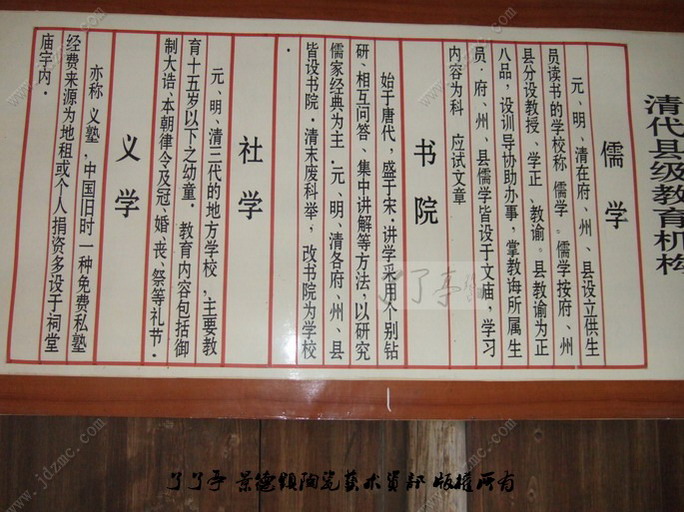 清代县级教育机构
儒学
元、明、清在府、州、县设立供生
员读书的学校称 儒学 。儒学按府、州
县分设教授、学正、教谕。县教谕为正
八品，设训导协助办事，掌教诲所属生
员．府、州、县儒学皆设于文庙，学习
内容为科 应试文章
书院
始于唐代，盛于宋．讲学采用个别钻
研、相互问答、集中讲解等方法，以研究
儒家经典为主．元、明、清各府、州、县
皆设书院．清末废科举，改书院为学校
社学
元、明、清三代的地方学校，主要教
育十五岁以下之幼童． 教育内容包括御
制大诰、本朝律令及冠、婚、丧、祭等礼节．
义学
亦称 义塾，中国旧时一种免费私塾
经费来源为地租或个人捐资多设于祠堂
庙宇内．
了了亭
了了亭 景德镇陶瓷艺术资部 版权所有
www.jdzmc.com